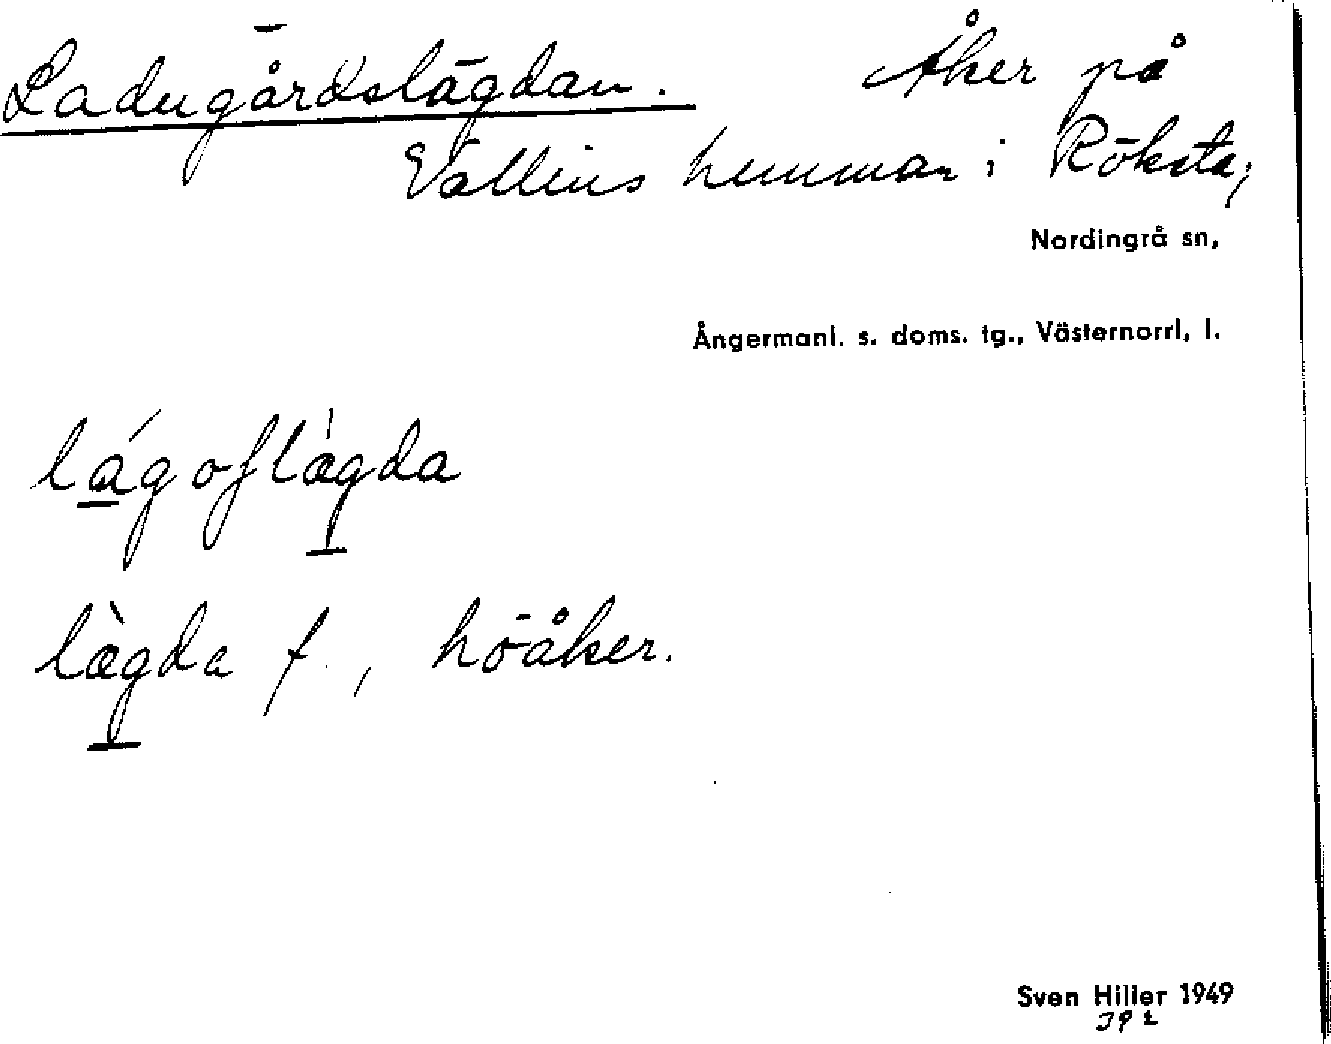 Ladugårdslägdan. Åker på
Vallins hemman i Röksta,
Nordingrå sn,
Ångermanl. s. doms. tg., Västernorrl, l.
lägda f., höåker.
Sven Hiller 1949